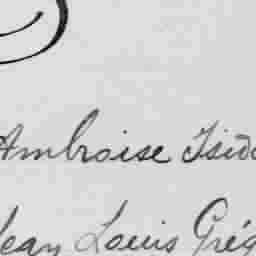 Ambroise Isido
Jean Louis Grég